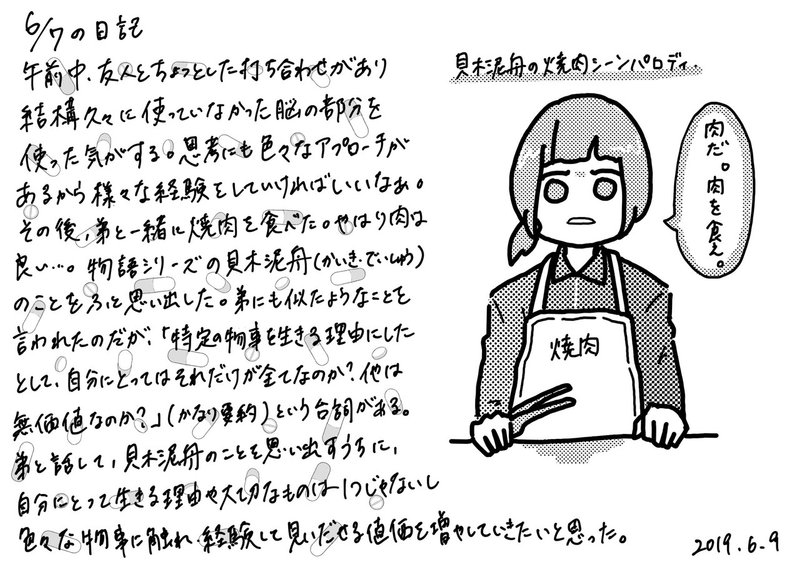 6/7の日記
午前中、友人とちょっとした打ち合わせがあり
結構久々に使っていなかった脳の部分を
使った気がする。思考にも色々なアプローチが
あるから様々な経験をしていければいいなぁ。
その後、弟と一緒に焼肉を食べた。やはり肉は
良い…。物語シリーズの貝木泥舟(かいき・でいしゅう)
のことをふと思い出した。弟にも似たようなことを
言われたのだが、「特定の物事を生きる理由にした
として、自分にとってはそれだけが全てなのか?他は
無価値なのか?」(かなり要約)という台詞がある。
弟と話して、貝木泥舟のことを思い出すうちに、
自分にとって生きる理由や大切なものは1つじゃないし
色々な物事に触れ、経験して見いだせる価値を増やしていきたいと思った。
貝木泥舟の焼肉シーンパロディ.
肉だ。肉を食え。
焼肉
2019.6.9